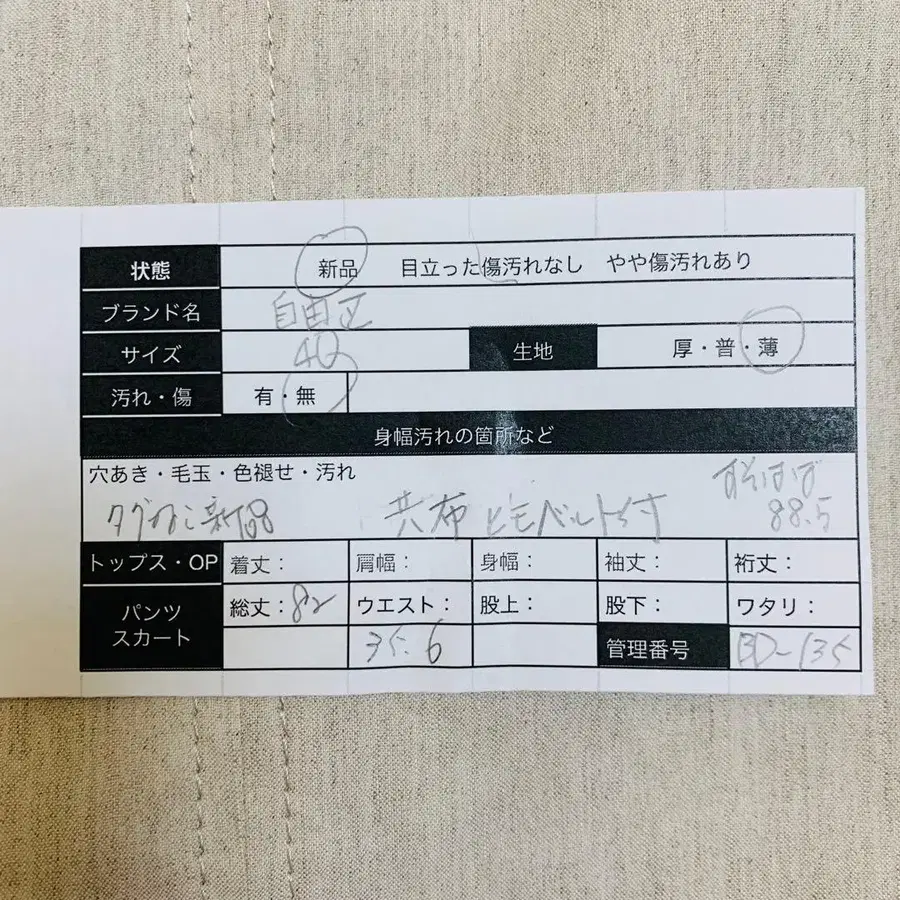 状態 新品 目立った傷汚れなし やや傷汚れあり
ブランド名 自由区
サイズ 40 生地 厚・普・薄
汚れ・傷 有・無
身幅汚れの箇所など
穴あき・毛玉・色褪せ・汚れ すそはば
タグなし新品 共布ともベルト付 88.5
トップス・OP 着丈: 肩幅: 身幅: 袖丈: 裄丈:
パンツ 総丈:82 ウエスト: 股上: 股下: ワタリ:
スカート 35.6 管理番号 BD-135